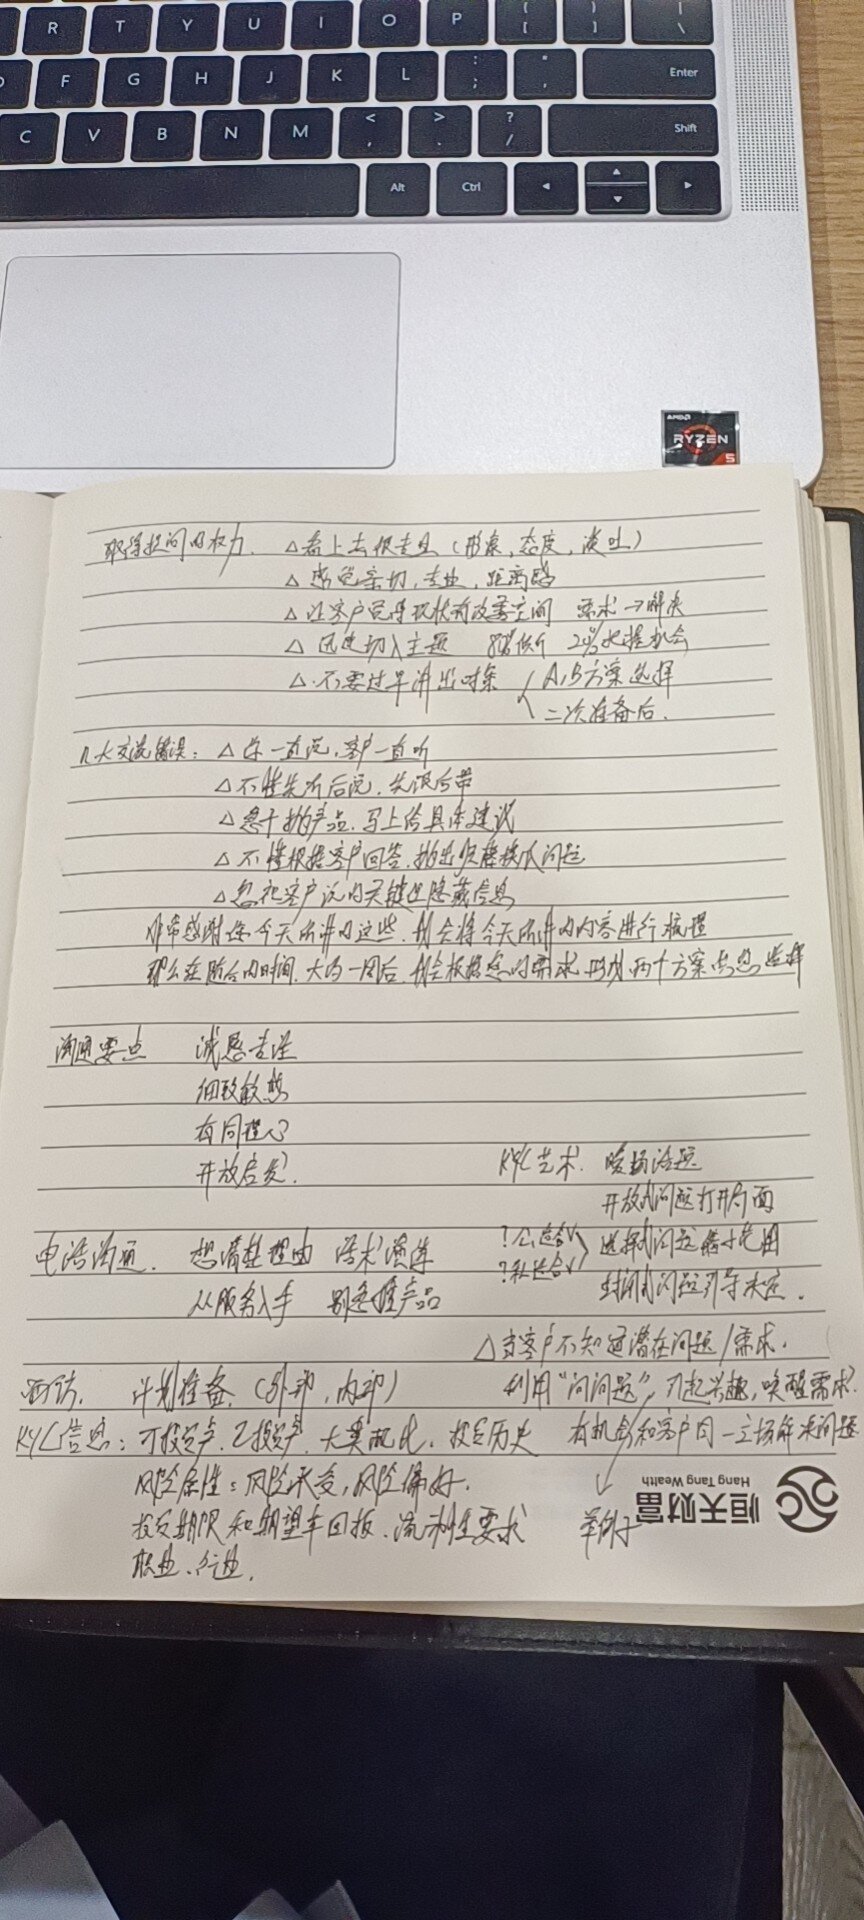 R T Y U I O P { [ } ] | \
F G H J K L : ; " ' Enter
C V B N M < , > . ? / Shift
Alt Ctrl
AMD
RYZEN
5
取得提问的权力. △看上去很专业(形象,态度,谈吐)
△感觉亲切,专业,距离
△让客户觉得现状有改善空间 需求→解决
△迅速切入主题 80%倾听 20%把握机会
△不要过早讲出对策 A,B方案选择
二次准备后.
几大交流错误: △你一直说,客户一直听
△不懂先听后说,先跟后带
△急于抛产品,马上给具体建议
△不懂根据客户回答,抛出问题
△忽视客户说的关键及隐藏信息
非常感谢您今天所讲的这些,我会将今天所讲的内容进行梳理
那么在随后的时间,大约一周后,我会根据您的需求,规划两个方案供您选择
沟通要点 诚恳专注
细致敏感
有同理心
开放启发
KYC艺术. 暖场话题
开放式问题打开局面
电话沟通. 想清楚理由 话术演练
?公适合√ ?私适合√ 选择式问题缩小范围
从服务入手 别急推产品
封闭式问题引导决定.
△当客户不知道潜在问题/需求.
面访. 计划准备.(外部,内部)
利用“问问题”,引起兴趣,唤醒需求.
KYC信息: 可投资产,已投资产,大类配比,投资历史
有机会和客户同一立场解决问题
风险属性:风险承受,风险偏好.
投资期限和期望年回报,流动性要求
举例子
职业、行业.
恒天财富
Hang Tang Wealth